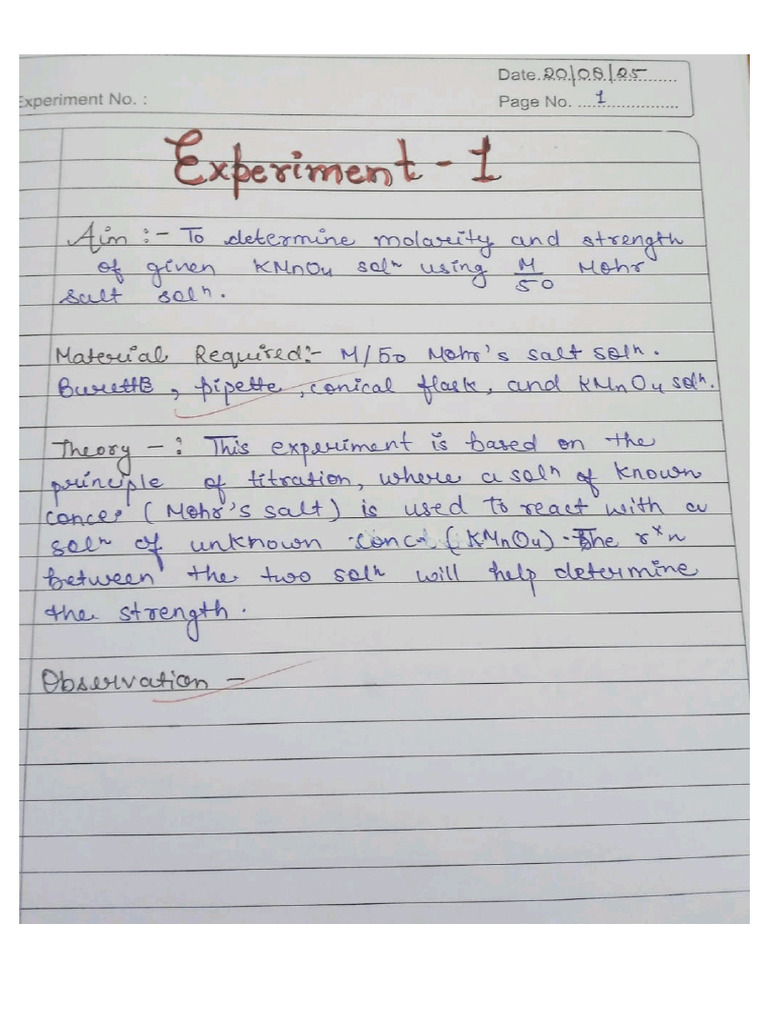 Date. 20/08/25
Experiment No. :
Page No. 1
Experiment - 1
Aim :- To determine molarity and strength
of given KMnO4 solⁿ using M/50 Mohr
salt solⁿ.
Material Required:- M/50 Mohr's salt solⁿ.
Burette, pipette, conical flask, and KMnO4 solⁿ.
Theory -: This experiment is based on the
principle of titration, where a solⁿ of known
conc. (Mohr's salt) is used to react with a
solⁿ of unknown conc. (KMnO4). The rˣn
between the two solⁿ will help determine
the strength.
Observation -